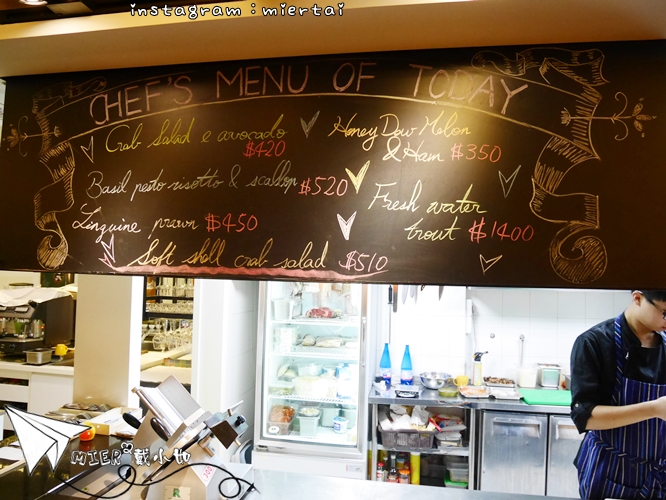 instagram：miertai
CHEF'S MENU OF TODAY
Crab Salad e avocado
$420
Basil pesto risotto & scallop $520
Linguine prawn $450
Soft shell crab salad $510
Honey Dow Melon
& Ham $350
Fresh water
trout $1400
MIER 戴小仙